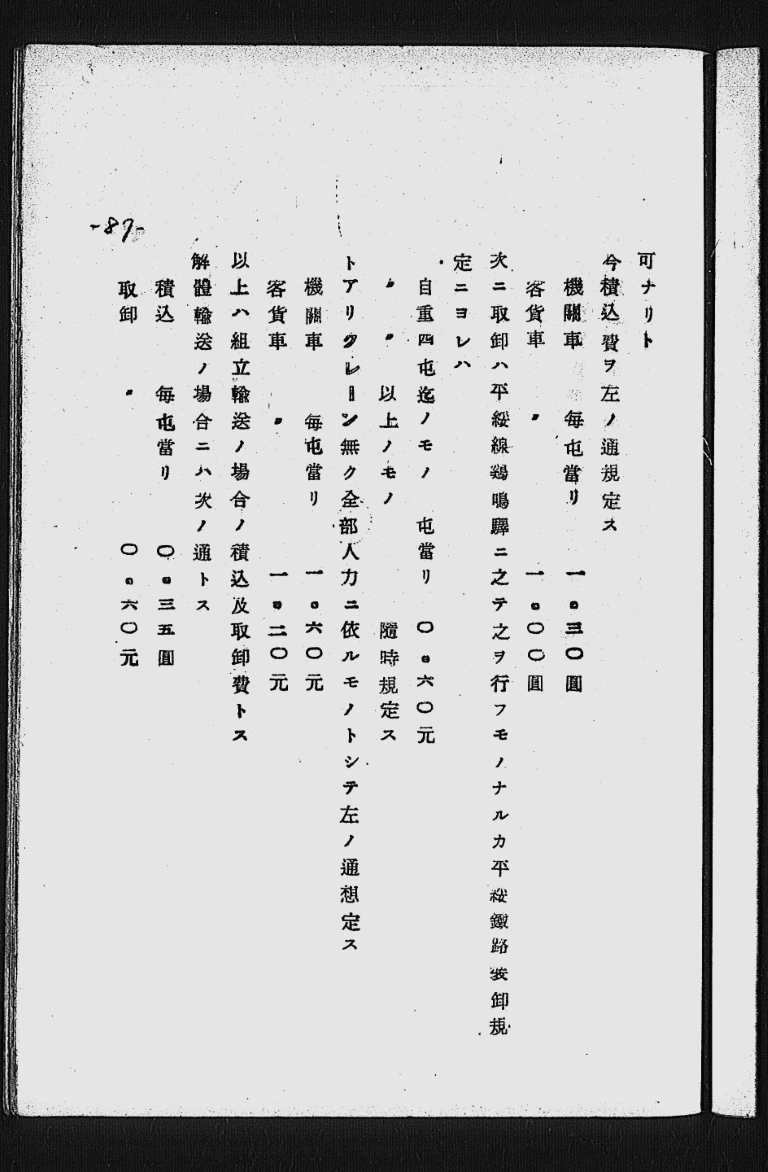 可ナリト
今積込費ヲ左ノ通規定ス
機關車 每屯當リ 一。三〇圓
客貨車 〃 一。〇〇圓
次ニ取卸ハ平綏線鷄鳴驛ニ之テ之ヲ行フモノナルカ平綏鐵路裝卸規
定ニヨレハ
自重四屯迄ノモノ 屯當リ 〇。六〇元
〃 〃 以上ノモノ 隨時規定ス
トアリクレーン無ク全部人力ニ依ルモノトシテ左ノ通想定ス
機關車 每屯當リ 一。六〇元
客貨車 〃 一。二〇元
以上ハ組立輸送ノ場合ノ積込及取卸費トス
解體輸送ノ場合ニハ次ノ通トス
積込 每屯當リ 〇。三五圓
取卸 〃 〇。六〇元
-87-